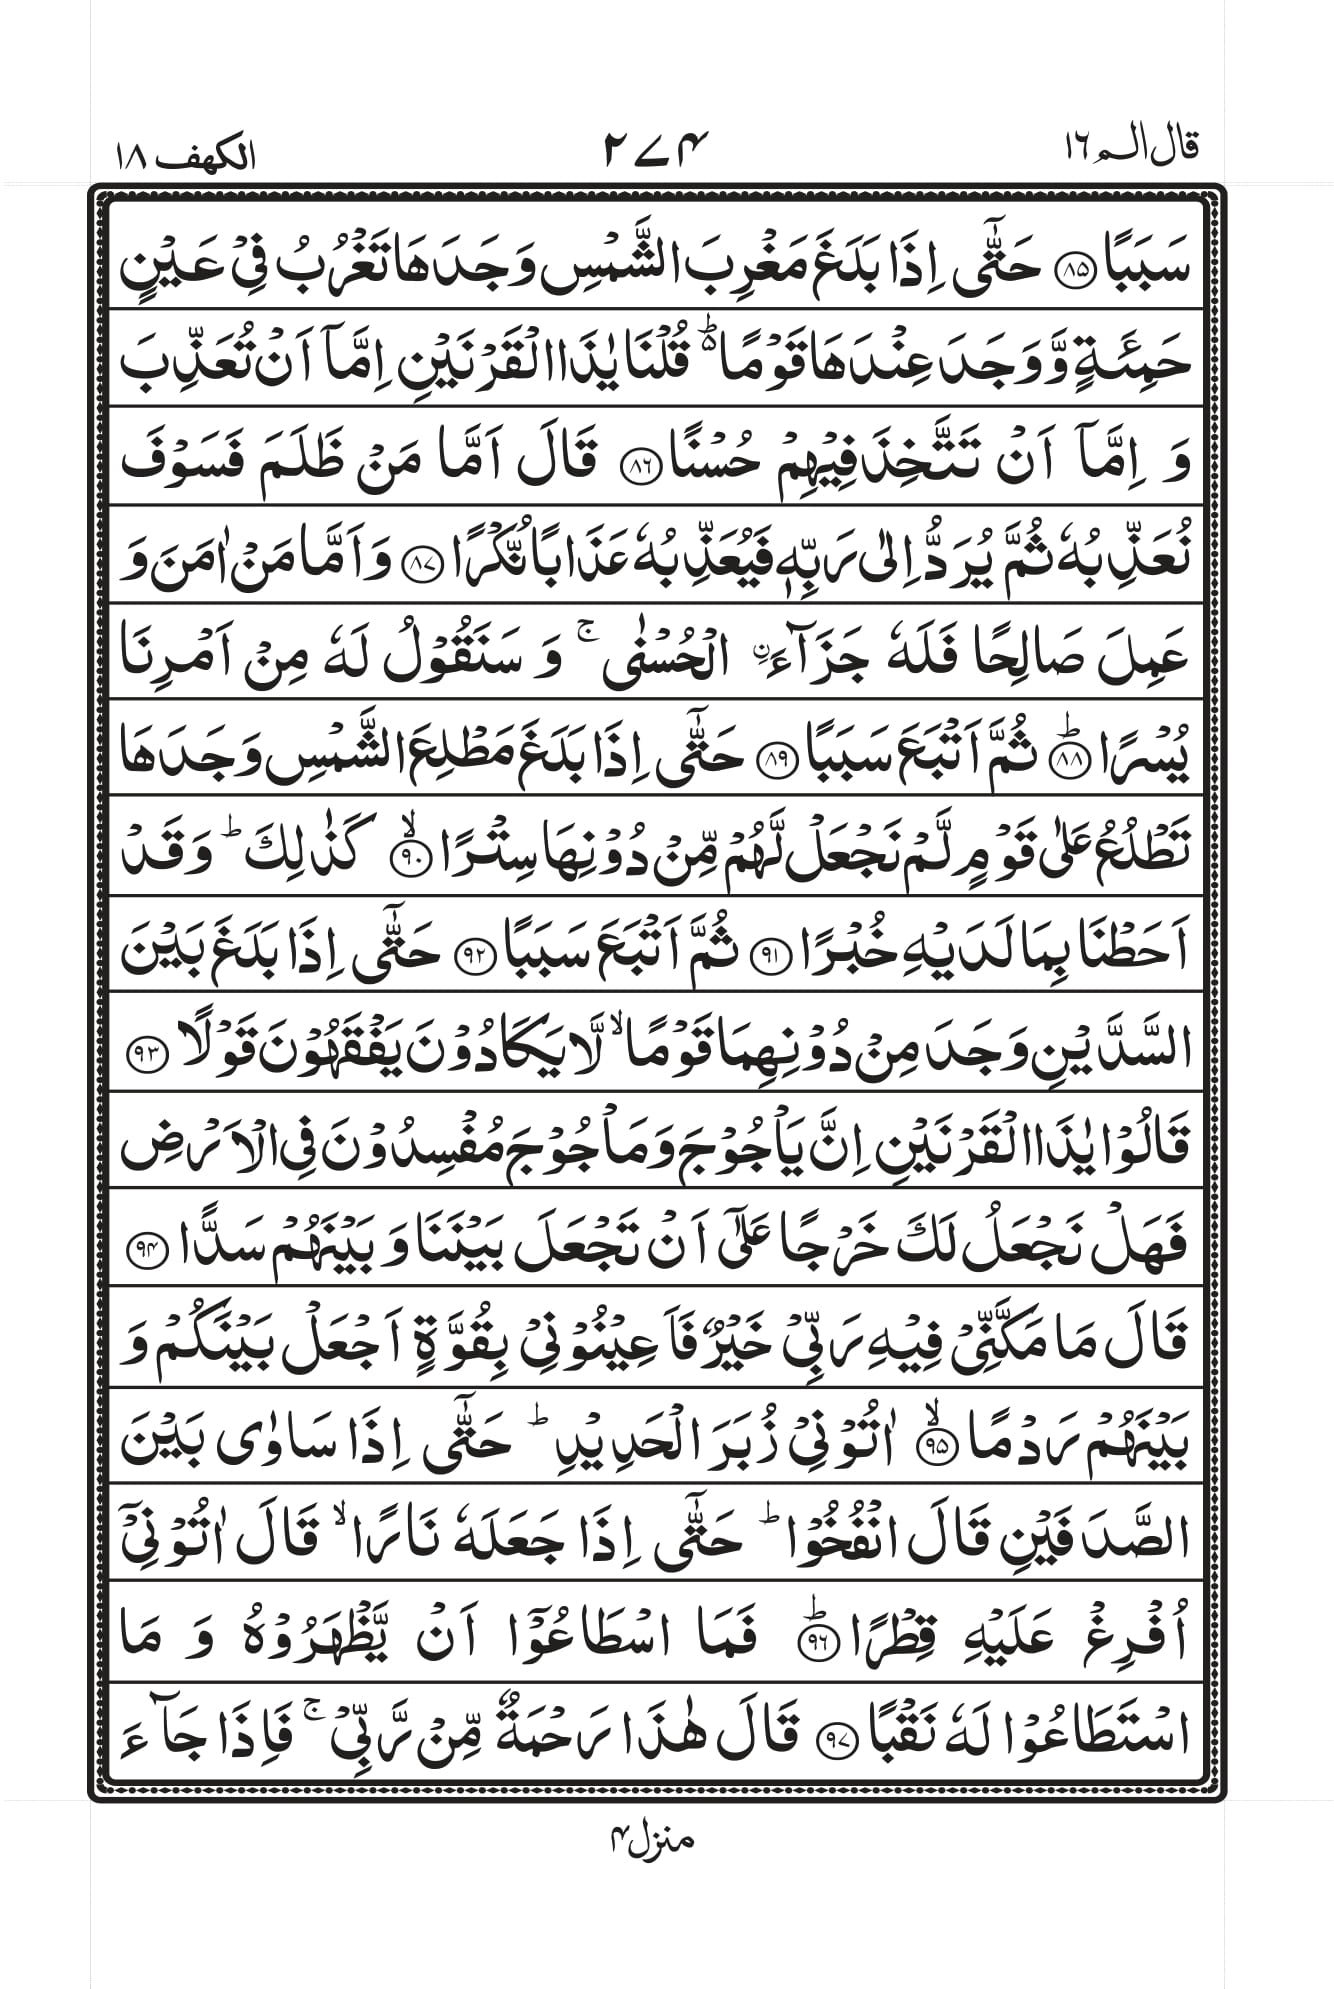 قال الم ١٦
٢٧٤
الكهف ١٨
سَبَبًا ﴿٨٥﴾ حَتّٰۤى اِذَا بَلَغَ مَغْرِبَ الشَّمْسِ وَجَدَهَا تَغْرُبُ فِیْ عَیْنٍ
حَمِئَةٍ وَّ وَجَدَ عِنْدَهَا قَوْمًا ؕ۬ قُلْنَا یٰذَا الْقَرْنَیْنِ اِمَّاۤ اَنْ تُعَذِّبَ
وَ اِمَّاۤ اَنْ تَتَّخِذَ فِیْهِمْ حُسْنًا ﴿٨٦﴾ قَالَ اَمَّا مَنْ ظَلَمَ فَسَوْفَ
نُعَذِّبُهٗ ثُمَّ یُرَدُّ اِلٰى رَبِّهٖ فَیُعَذِّبُهٗ عَذَابًا نُّكْرًا ﴿٨٧﴾ وَ اَمَّا مَنْ اٰمَنَ وَ
عَمِلَ صَالِحًا فَلَهٗ جَزَآءَ ِ۟الْحُسْنٰى ۚ وَ سَنَقُوْلُ لَهٗ مِنْ اَمْرِنَا
یُسْرًا ﴿٨٨﴾ؕ ثُمَّ اَتْبَعَ سَبَبًا ﴿٨٩﴾ حَتّٰۤى اِذَا بَلَغَ مَطْلِعَ الشَّمْسِ وَجَدَهَا
تَطْلُعُ عَلٰى قَوْمٍ لَّمْ نَجْعَلْ لَّهُمْ مِّنْ دُوْنِهَا سِتْرًا ﴿٩٠﴾ۙ كَذٰلِكَ ؕ وَ قَدْ
اَحَطْنَا بِمَا لَدَیْهِ خُبْرًا ﴿٩١﴾ ثُمَّ اَتْبَعَ سَبَبًا ﴿٩٢﴾ حَتّٰۤى اِذَا بَلَغَ بَیْنَ
السَّدَّیْنِ وَجَدَ مِنْ دُوْنِهِمَا قَوْمًا ۙ لَّا یَكَادُوْنَ یَفْقَهُوْنَ قَوْلًا ﴿٩٣﴾
قَالُوْا یٰذَا الْقَرْنَیْنِ اِنَّ یَاْجُوْجَ وَ مَاْجُوْجَ مُفْسِدُوْنَ فِی الْاَرْضِ
فَهَلْ نَجْعَلُ لَكَ خَرْجًا عَلٰۤى اَنْ تَجْعَلَ بَیْنَنَا وَ بَیْنَهُمْ سَدًّا ﴿٩٤﴾
قَالَ مَا مَكَّنِّیْ فِیْهِ رَبِّیْ خَیْرٌ فَاَعِیْنُوْنِیْ بِقُوَّةٍ اَجْعَلْ بَیْنَكُمْ وَ
بَیْنَهُمْ رَدْمًا ﴿٩٥﴾ۙ اٰتُوْنِیْ زُبَرَ الْحَدِیْدِ ؕ حَتّٰۤى اِذَا سَاوٰى بَیْنَ
الصَّدَفَیْنِ قَالَ انْفُخُوْا ؕ حَتّٰۤى اِذَا جَعَلَهٗ نَارًا ۙ قَالَ اٰتُوْنِیْۤ
اُفْرِغْ عَلَیْهِ قِطْرًا ﴿٩٦﴾ؕ فَمَا اسْطَاعُوْۤا اَنْ یَّظْهَرُوْهُ وَ مَا
اسْتَطَاعُوْا لَهٗ نَقْبًا ﴿٩٧﴾ قَالَ هٰذَا رَحْمَةٌ مِّنْ رَّبِّیْ ۚ فَاِذَا جَآءَ
منزل ٤